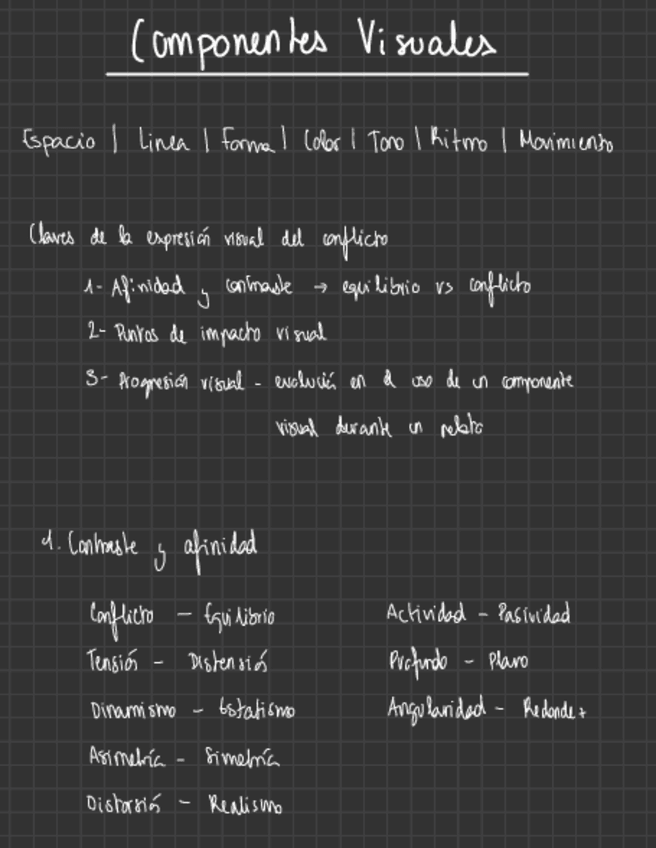 Componentes Visuales
Espacio | Linea | Forma | Color | Tono | Ritmo | Movimiento
Claves de la expresión visual del conflicto
1- Afinidad y contraste → equilibrio vs conflicto
2- Puntos de impacto visual
3- Progresión visual - evolución en el uso de un componente
visual durante un relato
1. Contraste y afinidad
Conflicto - Equilibrio
Tensión - Distensión
Dinamismo - Estatismo
Asimetría - Simetría
Distorsión - Realismo
Actividad - Pasividad
Profundo - Plano
Angularidad - Redondez